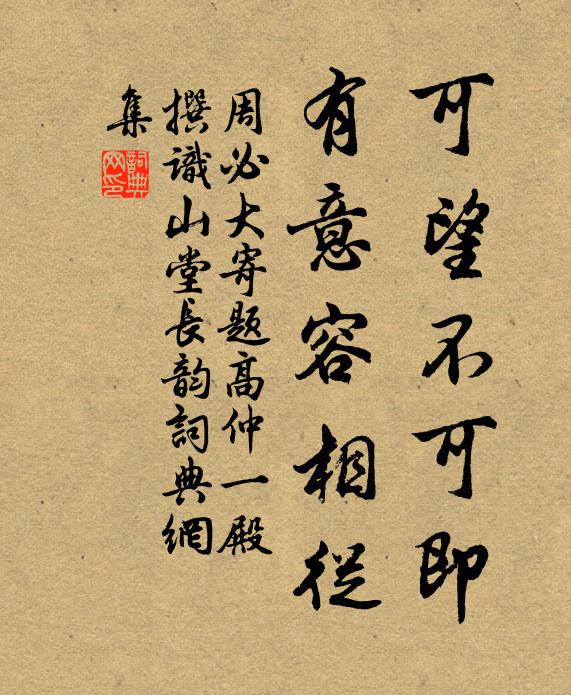 可望不可即
有意容相從
周必大寄題高仲一殿
撰識山堂長韵詞典網
集
詞典
网印